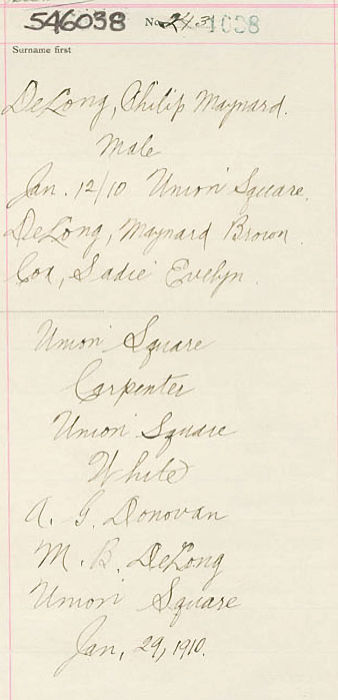 546038 No. 243 1038
Surname first
DeLong, Philip Maynard.
Male
Jan. 12/10 Union Square.
DeLong, Maynard Brown.
Cox, Sadie Evelyn.
Union Square
Carpenter
Union Square
White
A. G. Donovan
M. B. DeLong
Union Square
Jan, 29, 1910.